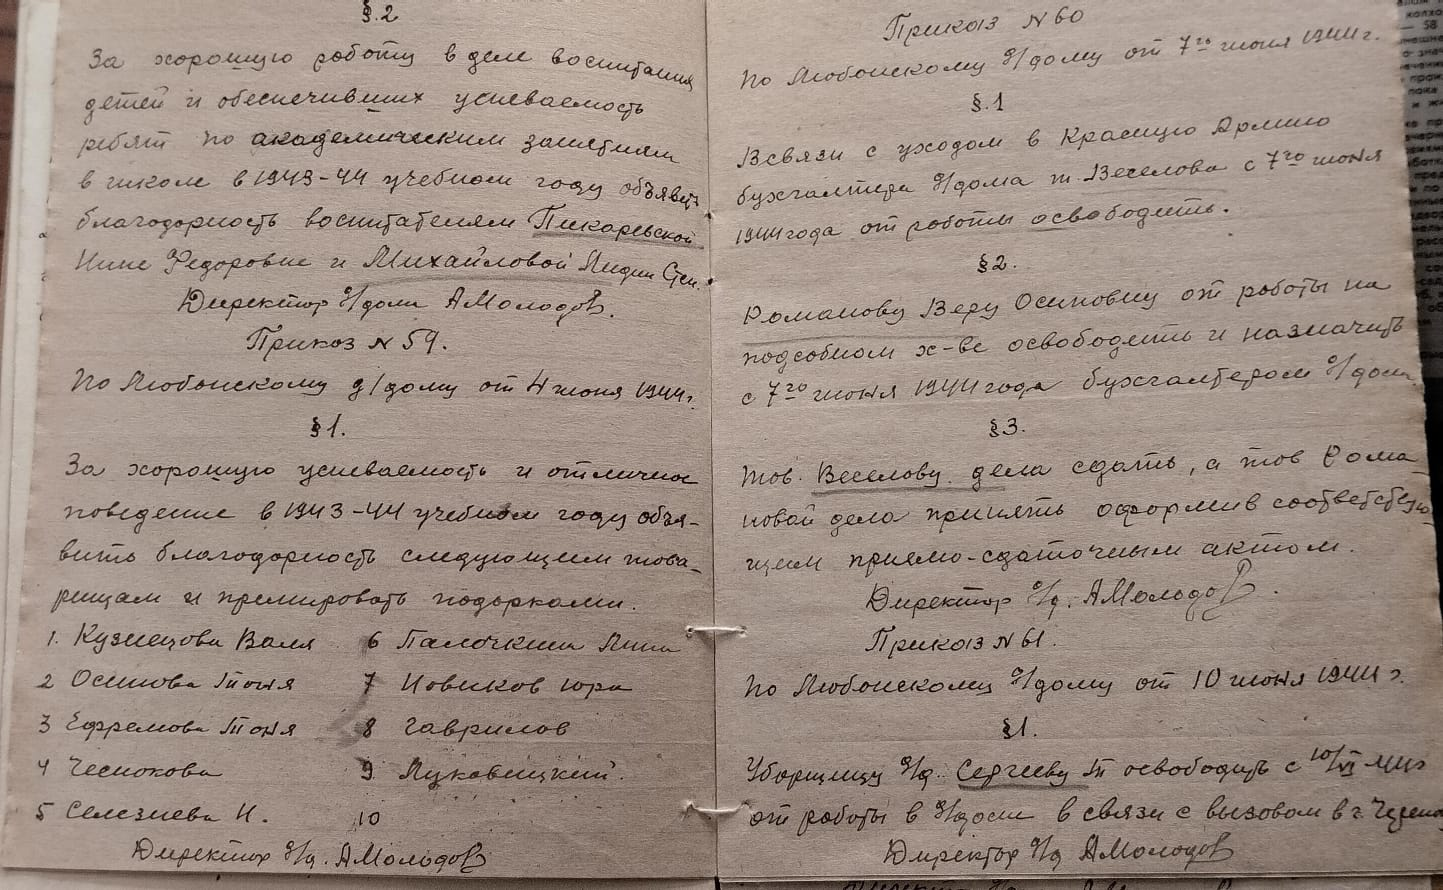 §.2
За хорошую работу в деле воспитания
детей и обеспечивших успеваемость
ребят по академическим занятиям
в школе в 1943-44 учебном году объявить
благодарность воспитателям Пикаревской
Нине Федоровне и Михайловой Лидии Степ.
Директор д/дома АМолодов.
Приказ N 59.
По Любонскому д/дому от 4 июня 1944г.
§1.
За хорошую успеваемость и отличное
поведение в 1943-44 учебном году объя-
вить благодарность следующим това-
рищам и премировать подарками.
1. Кузнецова Валя 6 Палочкина Нина
2 Осипова Тоня 7 Новиков Юра
3 Ефремова Тоня 8 Гаврилов
4 Чеснокова 9 Лукавицкий.
5 Селезнева Н. 10
Директор д/д. АМолодов
Приказ N 60
по Любонскому д/дому от 7го июня 1944г.
§.1
Всвязи с уходом в Красную Армию
бухгалтера д/дома т. Веселова с 7го июня
1944 года от работы освободить.
§2.
Романову Веру Осиповну от работы на
подсобном х-ве освободить и назначить
с 7го июня 1944 года бухгалтером д/дома
§3.
Тов. Веселову дела сдать, а тов Рома-
новой дела принять оформив соответствую-
щим приямо-сдаточным актом.
Директор д/д. АМолодов.
Приказ N 61.
по Любонскому д/дому от 10 июня 1944 г.
§1.
Уборщицу д/д. Сергееву Т освободить с 10/VI
от работы в д/доме в связи с вызовом в г.
Директор д/д АМолодов